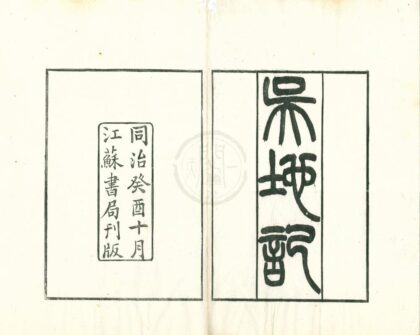 吳地記
同治癸酉十月
江蘇書局刊版